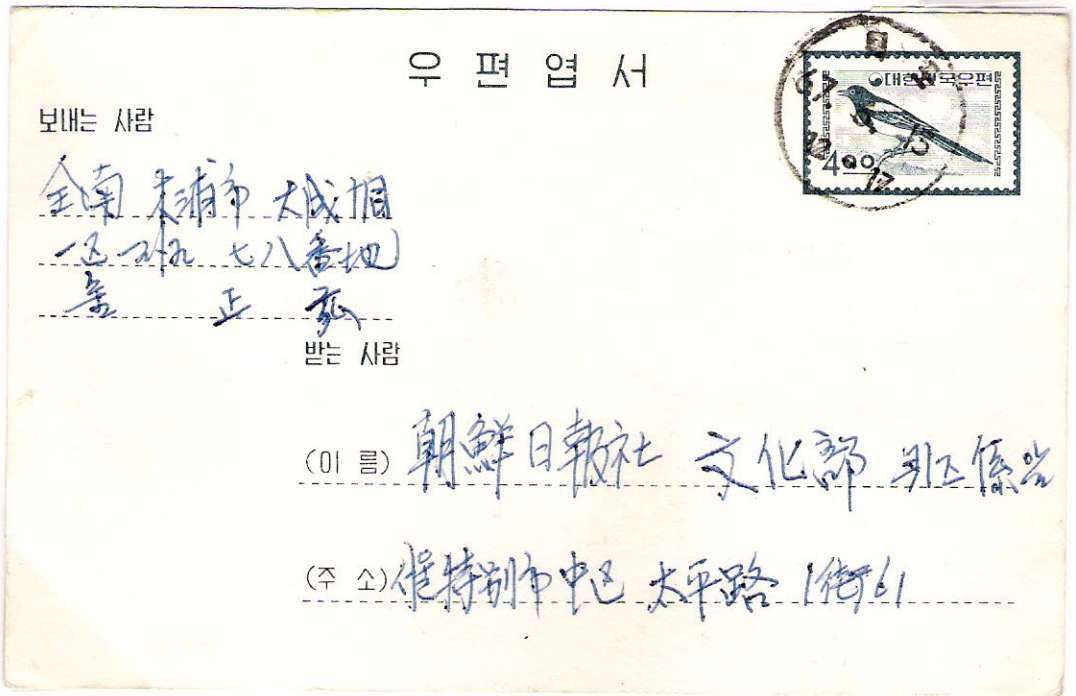 우편엽서
대한민국우편
4.00
보내는 사람
全南 木浦市 大成洞
一区 七八番地
正
받는 사람
(이 름) 朝鮮日報社 文化部 퀴즈係
(주 소) 特別市中区 太平路 1街61